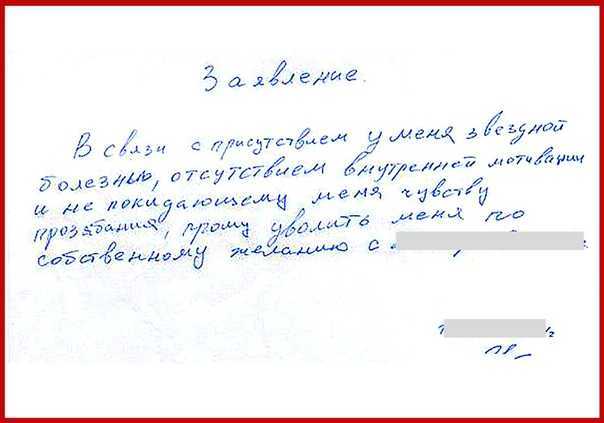 Заявление.
В связи с присутствием у меня звездной
болезнью, отсутствием внутренней мотивации
и не покидающему меня чувству
прозябания, прошу уволить меня по
собственному желанию с